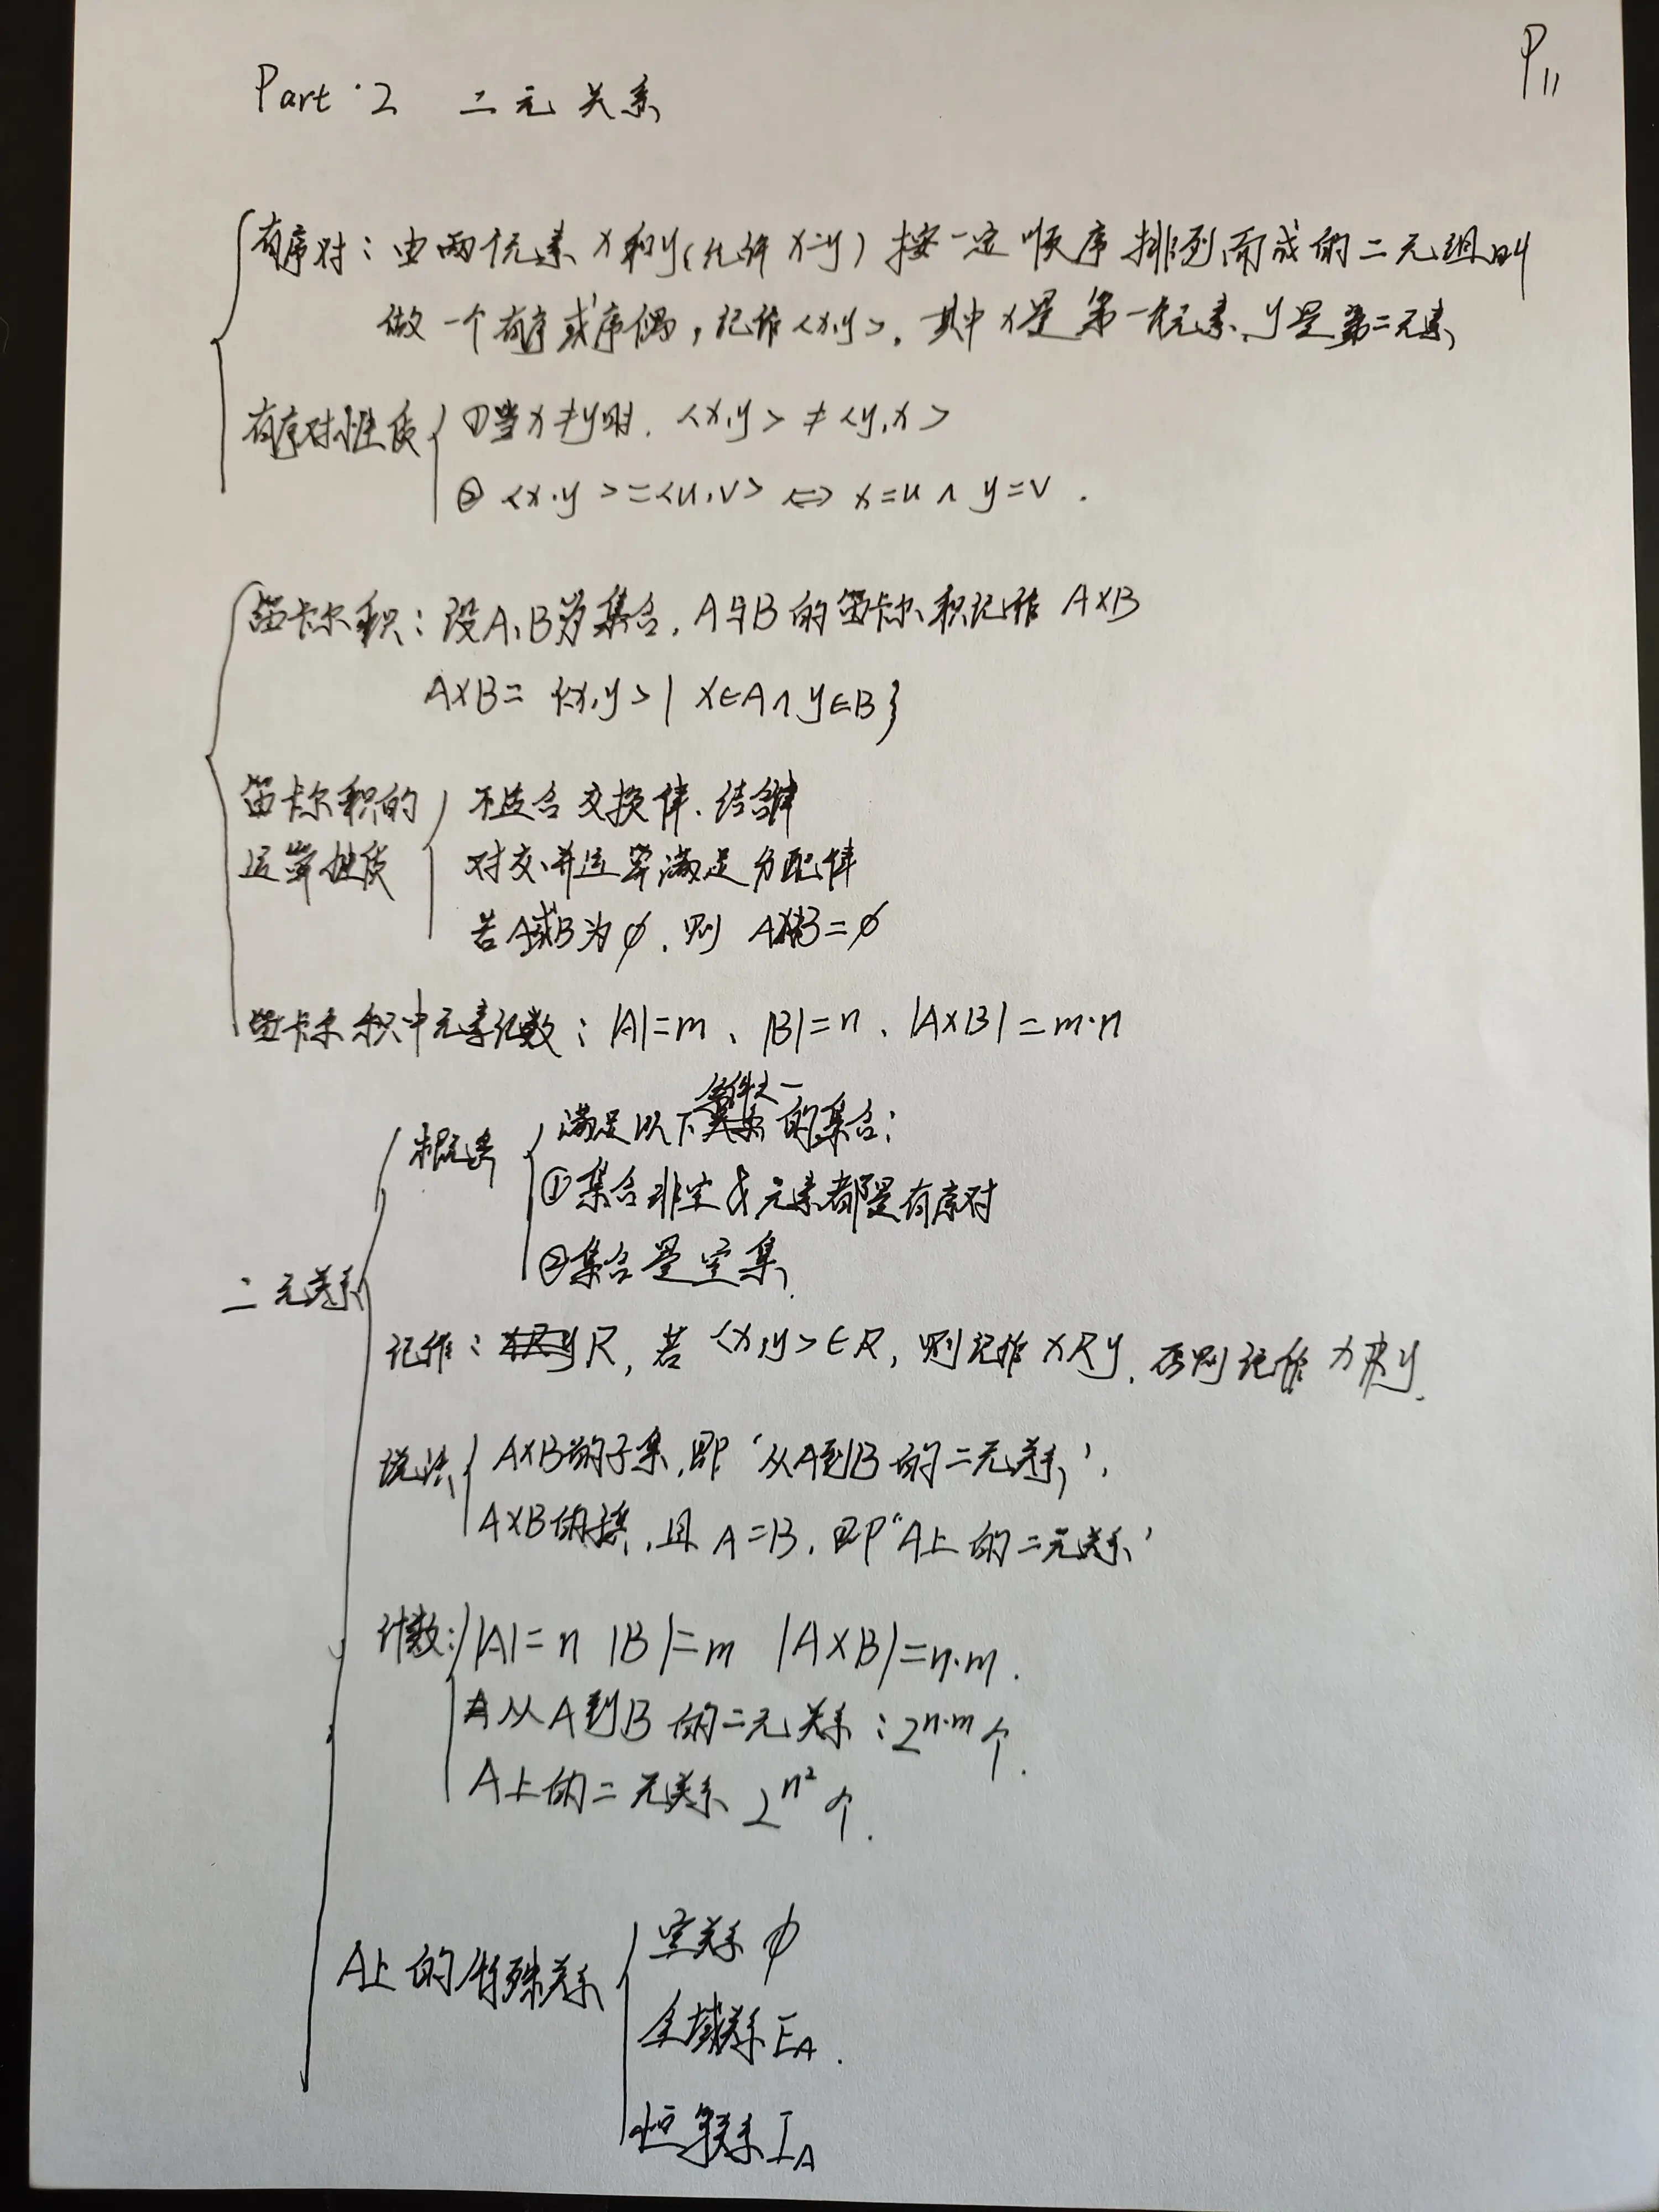 P11
Part·2 二元关系
有序对：由两个元素x和y(允许x=y)按一定顺序排列而成的二元组叫
做一个有序或序偶，记作<x,y>，其中x是第一元素、y是第二元素
有序对性质
①当x≠y时，<x,y>≠<y,x>
②<x,y>=<u,v> ⇔ x=u∧y=v．
笛卡尔积：设A、B为集合，A与B的笛卡尔积记作 A×B
A×B={<x,y>| x∈A∧y∈B}
笛卡尔积的
运算性质
不适合交换律、结合律
对交、并运算满足分配律
若A或B为∅，则 A×B=∅
笛卡尔积中元素记数：|A|=m、|B|=n、|A×B|=m·n
二元关系
概述
满足以下条件之一的集合：
①集合非空且元素都是有序对
②集合是空集
记作：R，若<x,y>∈R，则记作xRy，否则记作xR̸y．
说法
A×B的子集，即‘从A到B的二元关系’，
A×B的子集，且A=B，即“A上的二元关系’
计数：|A|=n |B|=m |A×B|=n·m．
从A到B的二元关系：2ⁿ·ᵐ个．
A上的二元关系 2^n²个．
A上的特殊关系
空关系 ∅
全域关系 E_A．
恒等关系 I_A